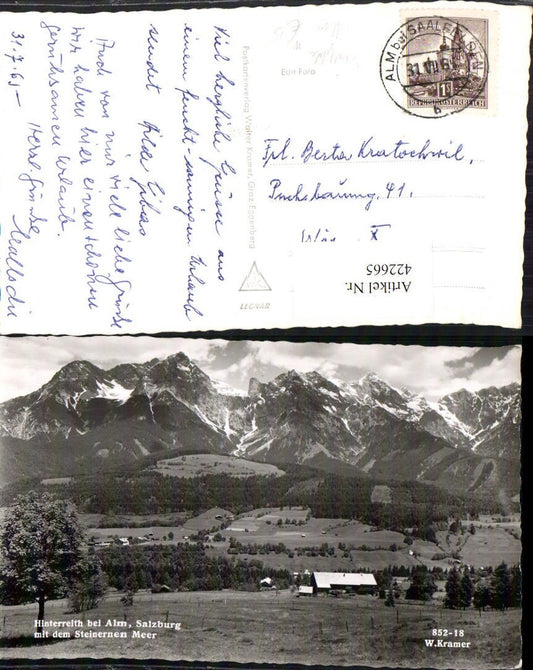 31.7.61 -
Viel herzliche Grüsse aus
einem feucht-sonnigen Urlaub
sendet Hilde
Auch von mir viele liebe Grüße
wir haben hier einen schönen
geruhsamen Urlaub.
Herzl. Grüße
Echt Foto
Postkartenverlag Walter Kramer, Graz-Eggenberg
LEGNAR
ALM bei SAALFELDEN
31.VII.61
b
REPUBLIK ÖSTERREICH
Frl. Berta Kratochwil,
41.
Wien X
Artikel Nr.
422665
Hinterreith bei Alm, Salzburg
mit dem Steinernen Meer
852-18
W.Kramer